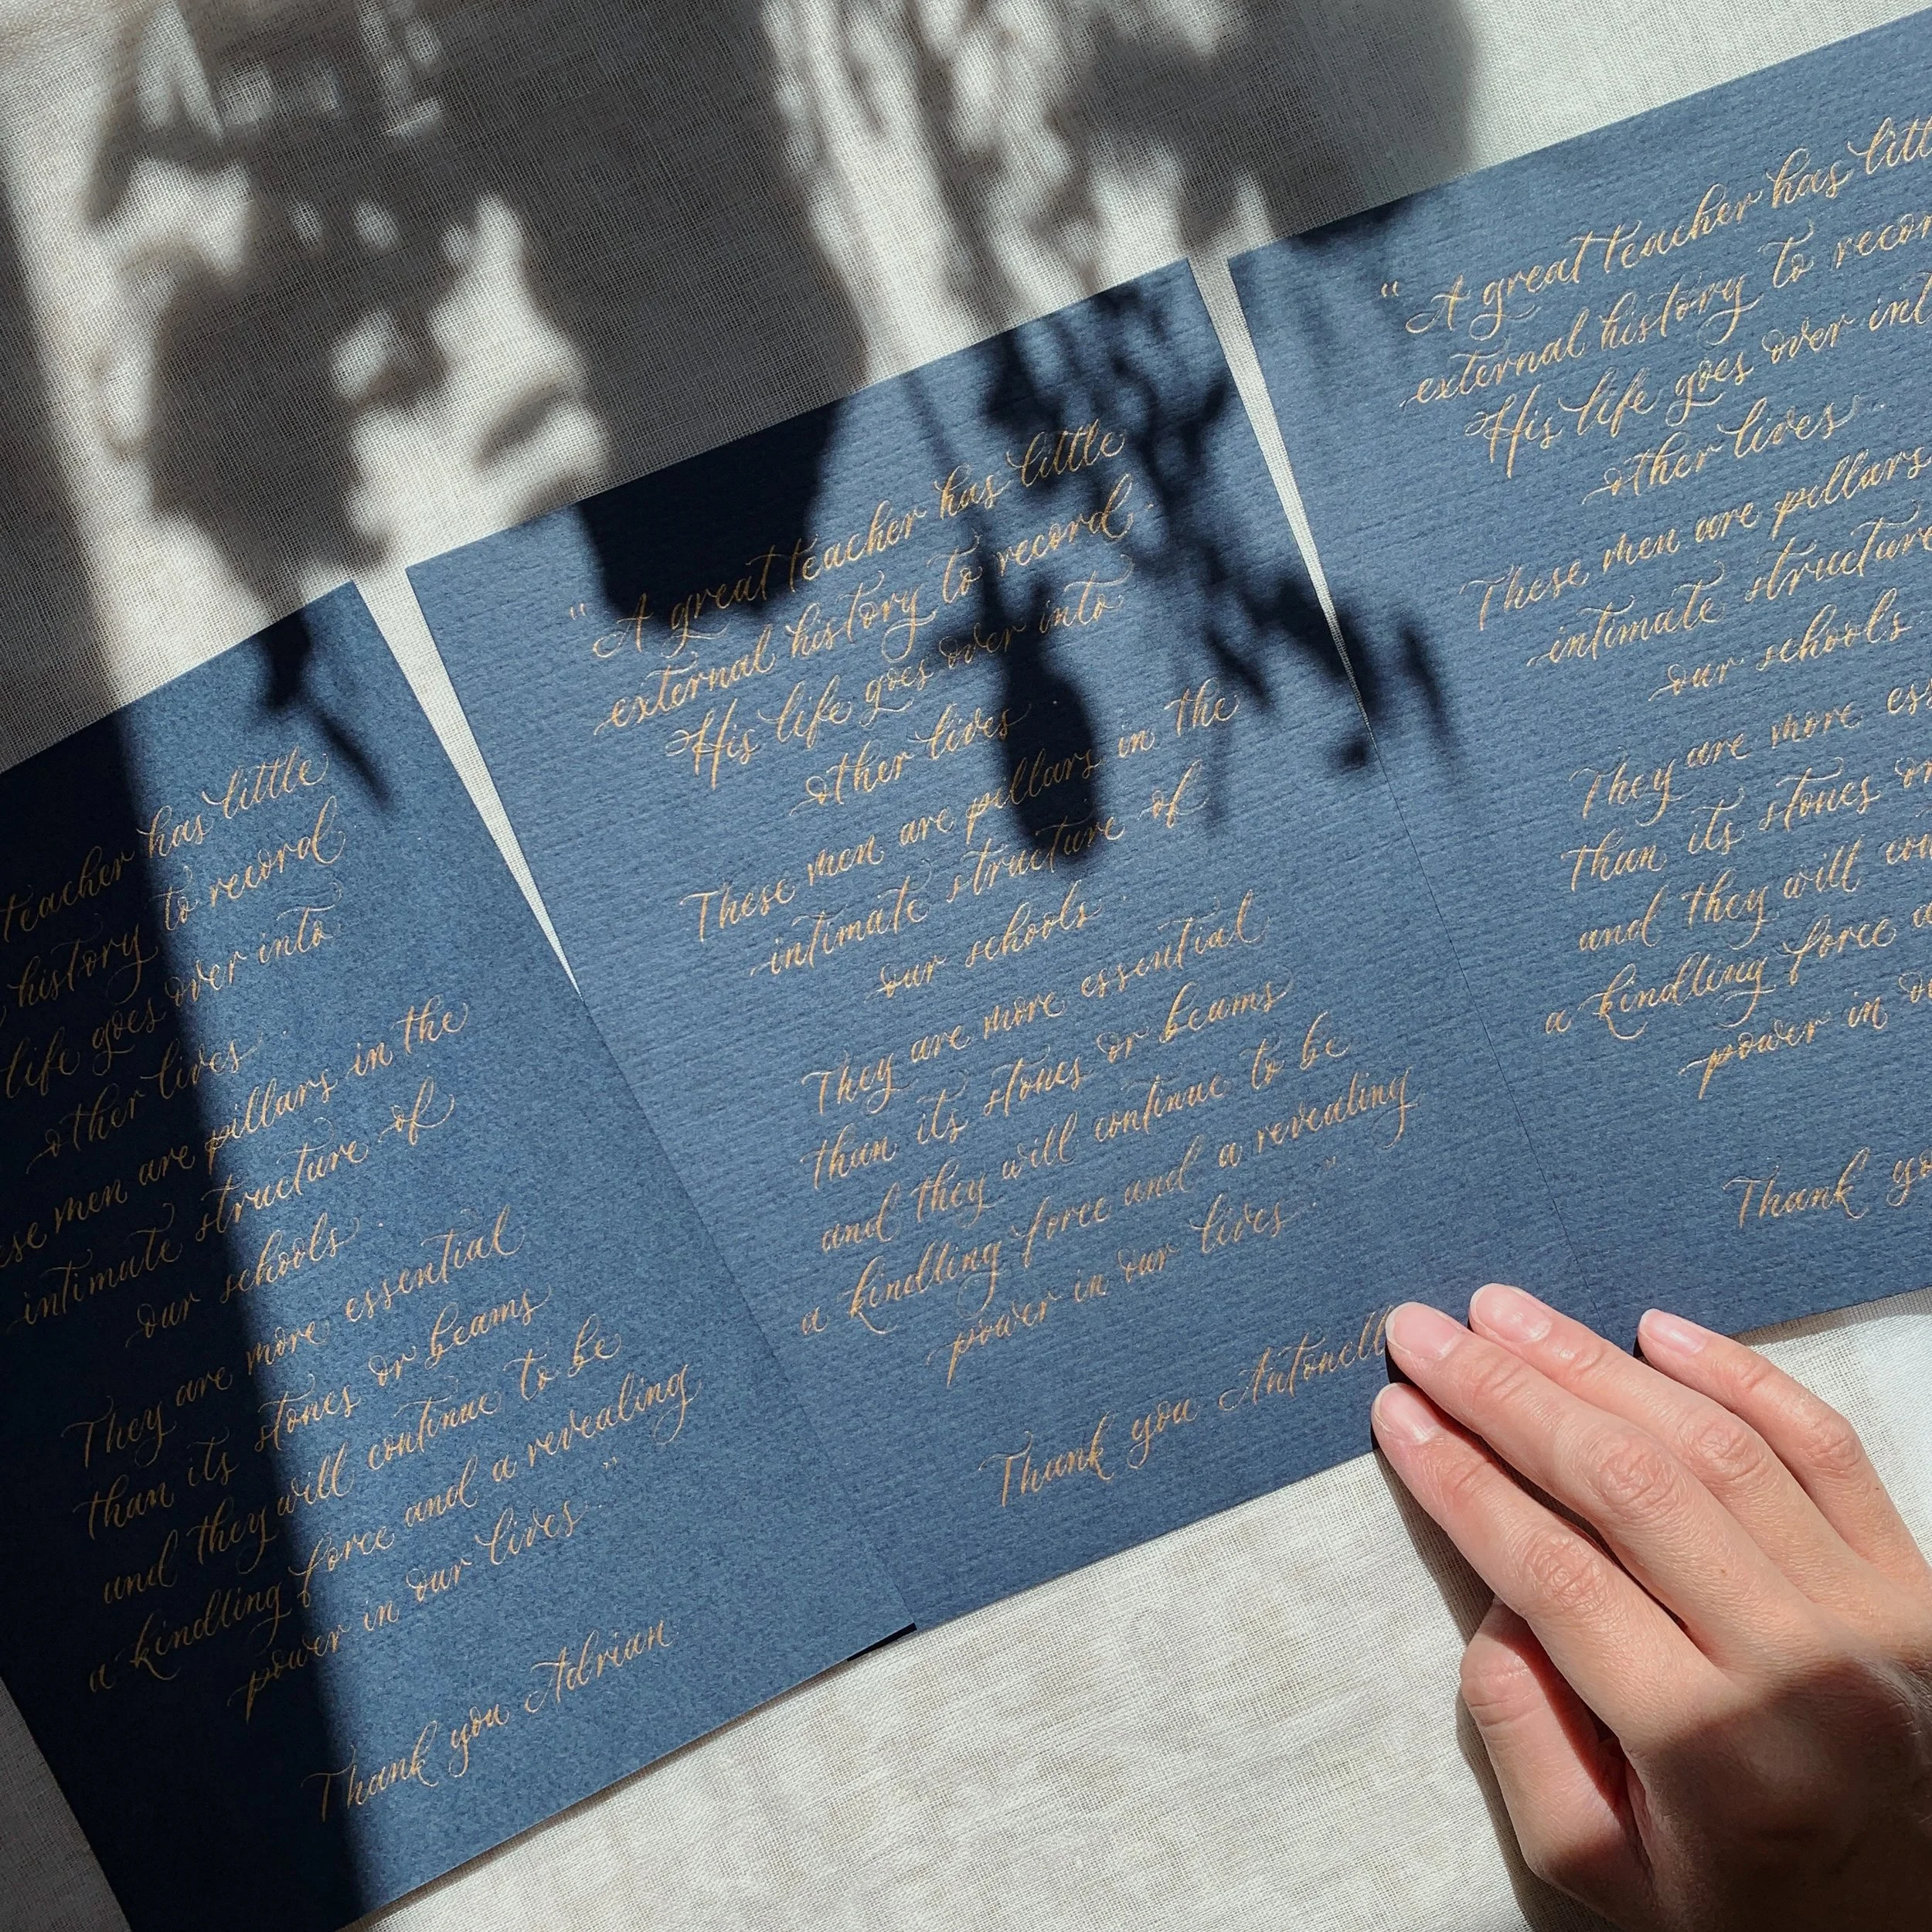 teacher has little
history to record
life goes over into
other lives
men are pillars in the
intimate structure of
our schools.
They are more essential
than its stones or beams
and they will continue to be
a kindling force and a revealing
power in our lives."
Thank you Adrian
"A great teacher has little
external history to record.
His life goes over into
other lives.
These men are pillars in the
intimate structure of
our schools.
They are more essential
than its stones or beams
and they will continue to be
a kindling force and a revealing
power in our lives."
Thank you
"A great teacher has
external history to
His life goes over
other lives.
These men are pillars
intimate structure
our schools
They are more
than its stones
and they will
a kindling force
power in
Thank